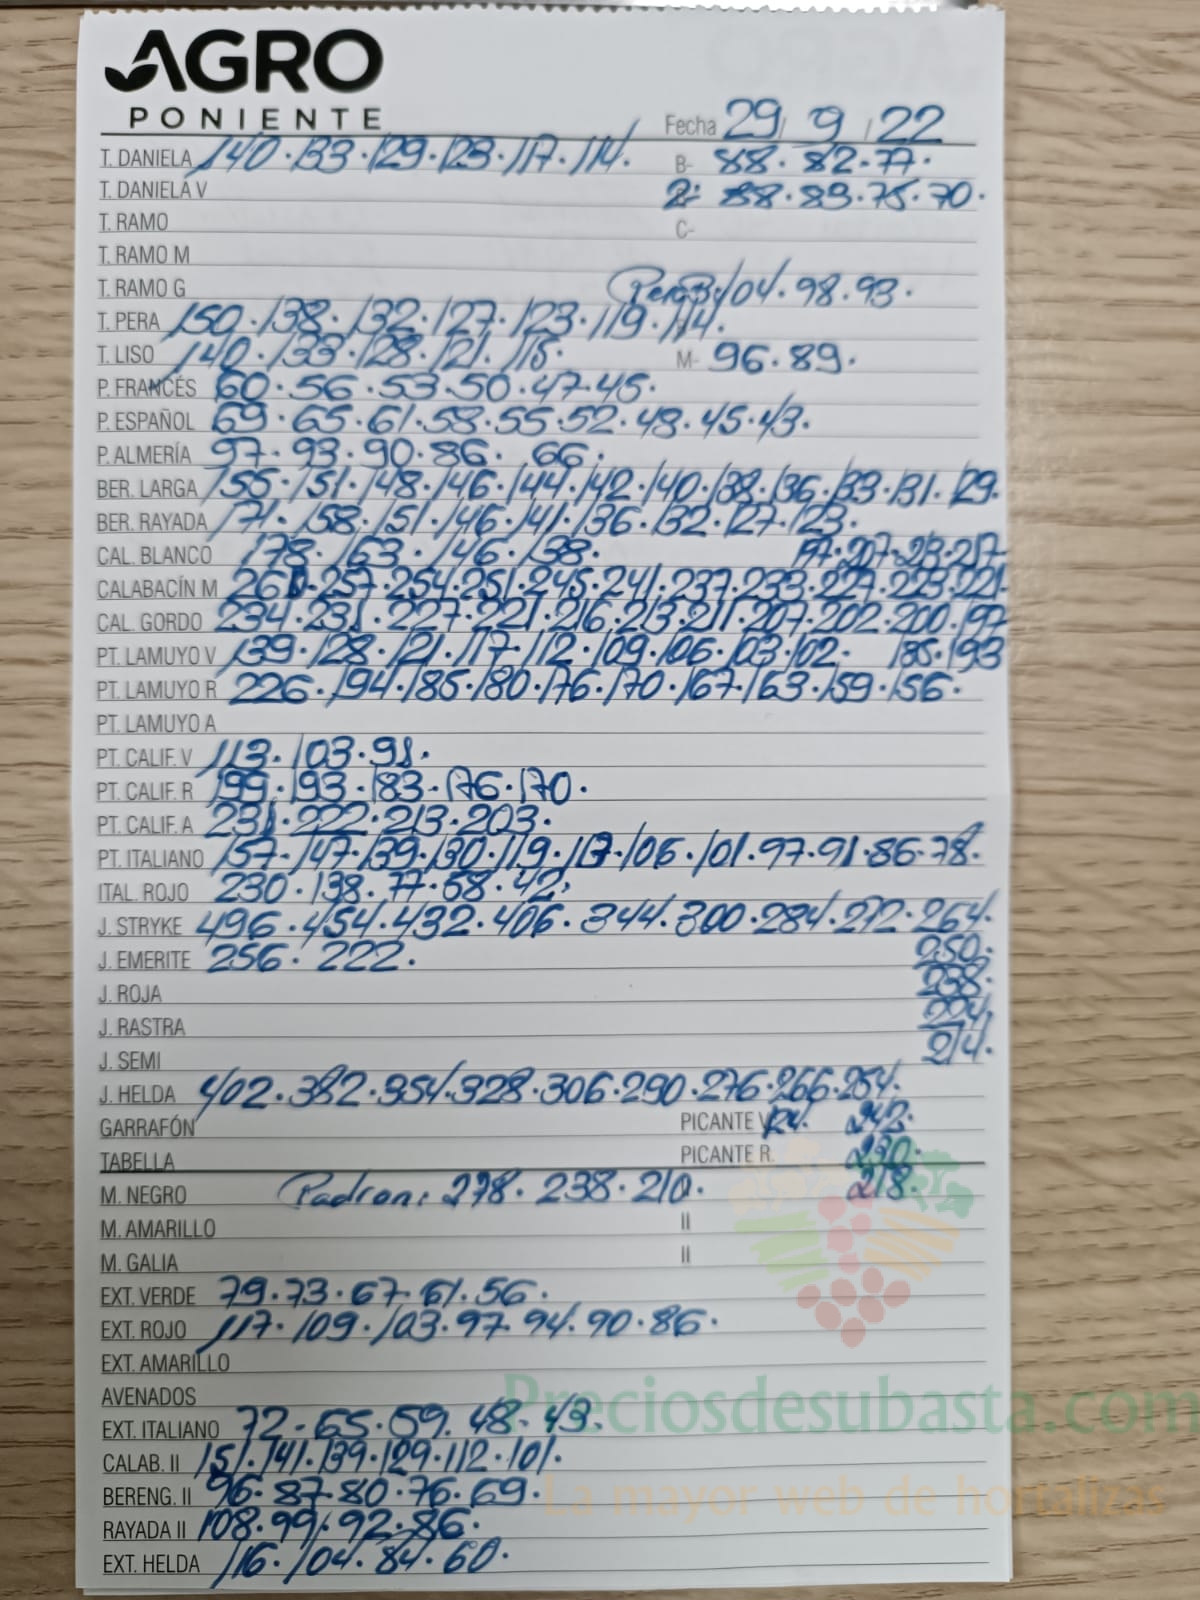 AGRO
PONIENTE
Fecha 29 / 9 / 22
T. DANIELA 140 · 133 · 129 · 123 · 117 · 114 · B- 88 · 82 · 77 ·
T. DANIELA V 2: 88 · 83 · 75 · 70 ·
T. RAMO C-
T. RAMO M
T. RAMO G Pera B: 104 · 98 · 93 ·
T. PERA 150 · 138 · 132 · 127 · 123 · 119 · 114 ·
T. LISO 140 · 133 · 128 · 121 · 115 · M- 96 · 89 ·
P. FRANCÉS 60 · 56 · 53 · 50 · 47 · 45 ·
P. ESPAÑOL 69 · 65 · 61 · 58 · 55 · 52 · 48 · 45 · 43 ·
P. ALMERÍA 97 · 93 · 90 · 86 · 66 ·
BER. LARGA 155 · 151 · 148 · 146 · 144 · 142 · 140 · 138 · 136 · 133 · 131 · 129 ·
BER. RAYADA 171 · 158 · 151 · 146 · 141 · 136 · 132 · 127 · 123 ·
CAL. BLANCO 178 · 163 · 146 · 138 · 207 · 213 · 217
CALABACÍN M 261 · 257 · 254 · 251 · 245 · 241 · 237 · 233 · 227 · 223 · 221 ·
CAL. GORDO 234 · 231 · 227 · 221 · 216 · 213 · 211 · 207 · 202 · 200 · 197
PT. LAMUYO V 139 · 128 · 121 · 117 · 112 · 109 · 106 · 103 · 102 · 185 · 193
PT. LAMUYO R 226 · 194 · 185 · 180 · 176 · 170 · 167 · 163 · 159 · 156 ·
PT. LAMUYO A
PT. CALIF. V 113 · 103 · 91 ·
PT. CALIF. R 199 · 193 · 183 · 176 · 170 ·
PT. CALIF. A 231 · 222 · 213 · 203 ·
PT. ITALIANO 157 · 147 · 139 · 130 · 119 · 113 · 106 · 101 · 97 · 91 · 86 · 78 ·
ITAL. ROJO 230 · 138 · 77 · 58 · 42 ·
J. STRYKE 496 · 454 · 432 · 406 · 344 · 300 · 284 · 272 · 264 ·
J. EMERITE 256 · 222 · 250 ·
J. ROJA 238 ·
J. RASTRA 224 ·
J. SEMI 214 ·
J. HELDA 402 · 382 · 354 · 328 · 306 · 290 · 276 · 266 · 254 ·
GARRAFÓN PICANTE V 124 · 242 ·
TABELLA PICANTE R. 230 ·
M. NEGRO Padron: 278 · 238 · 210 · 218 ·
M. AMARILLO II
M. GALIA II
EXT. VERDE 79 · 73 · 67 · 61 · 56 ·
EXT. ROJO 117 · 109 · 103 · 97 · 94 · 90 · 86 ·
EXT. AMARILLO
AVENADOS
Preciosdesubasta.com
EXT. ITALIANO 72 · 65 · 59 · 48 · 43 ·
CALAB. II 151 · 141 · 139 · 129 · 112 · 101 ·
La mayor web de hortalizas
BERENG. II 96 · 87 · 80 · 76 · 69 ·
RAYADA II 108 · 99 · 92 · 86 ·
EXT. HELDA 116 · 104 · 84 · 60 ·